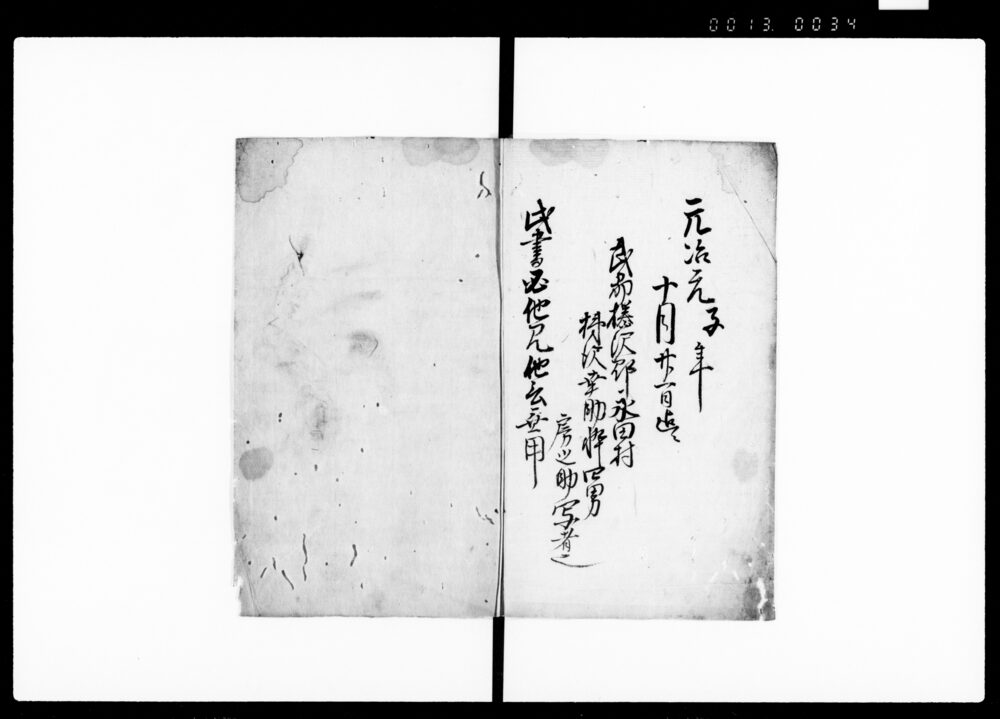 0013 0034
元治元子年
十月廿一日迄
武州榛沢郡永田村
持田幸助忰四男
房之助写者之
此書必他見他言無用